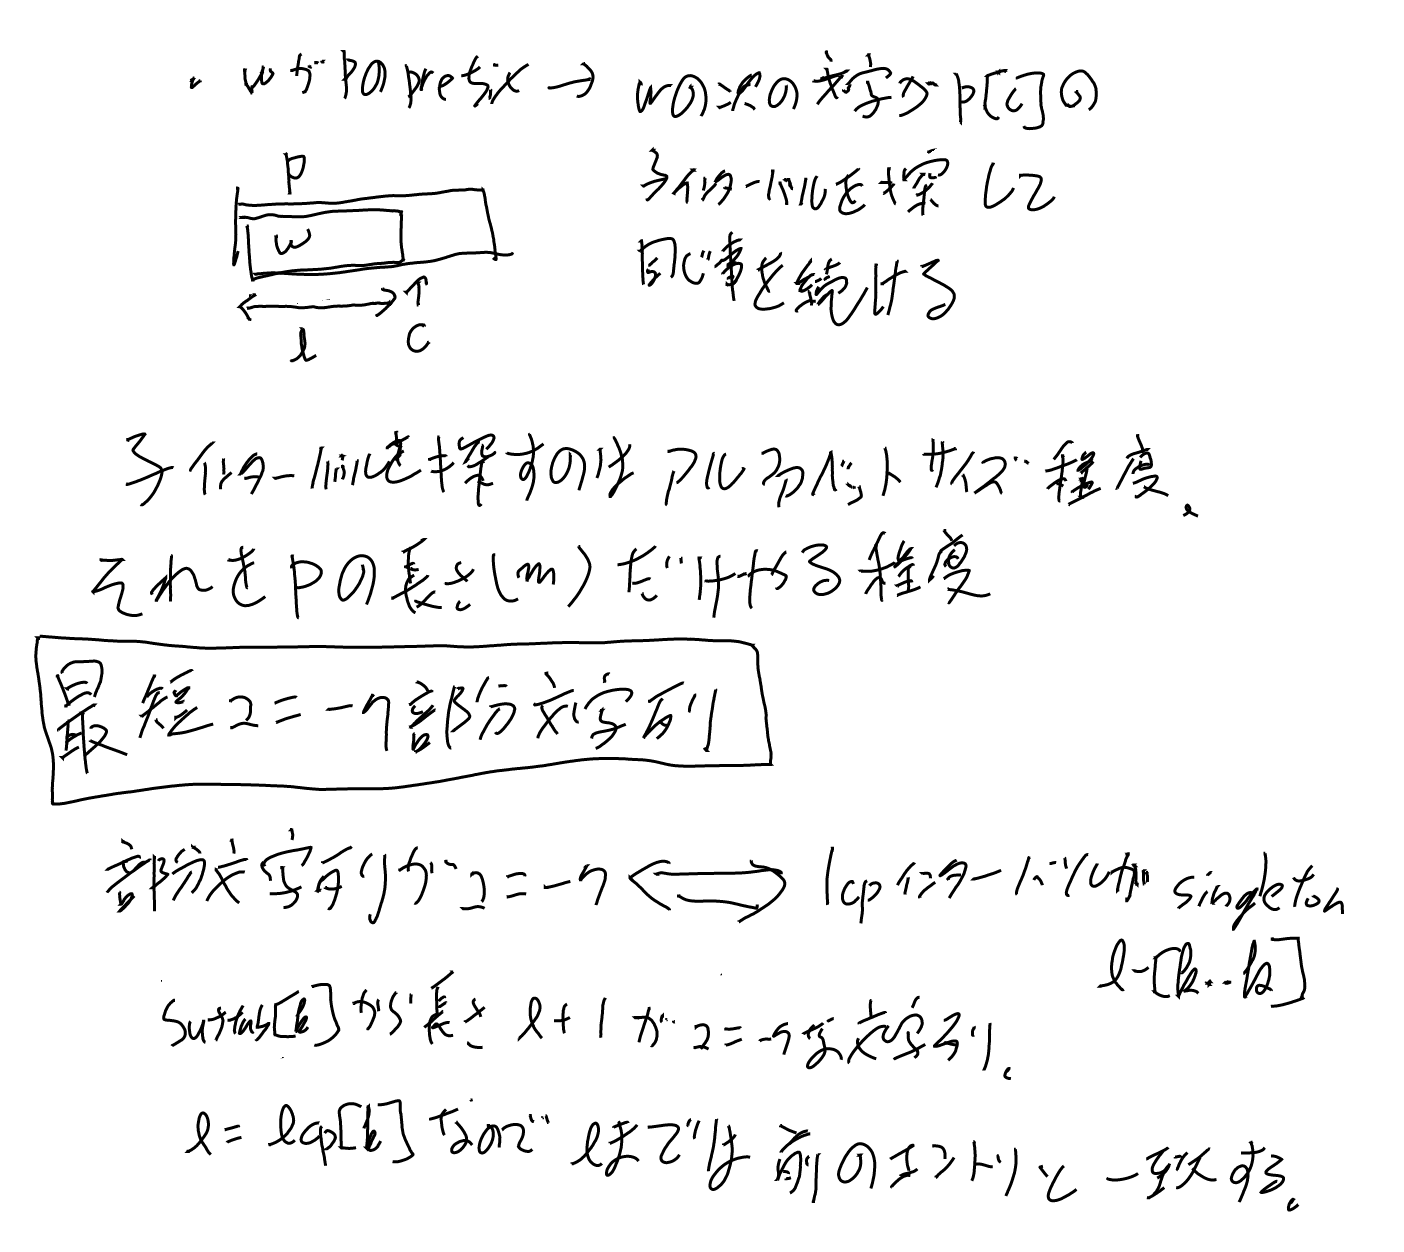 ・wがpのprefix → wの次の文字がp[c]の
子インターバルを探して
同じ事を続ける
p
w
l
c
子インターバルを探すのはアルファベットサイズ程度。
それをpの長さ(m)だけやる程度
最短ユニーク部分文字列
部分文字列がユニーク ⟺ lcpインターバルがsingleton
l-[k..k]
suftab[k]から長さl+1がユニークな文字列。
l = lcp[k]なのでlまでは前のエントリと一致する。